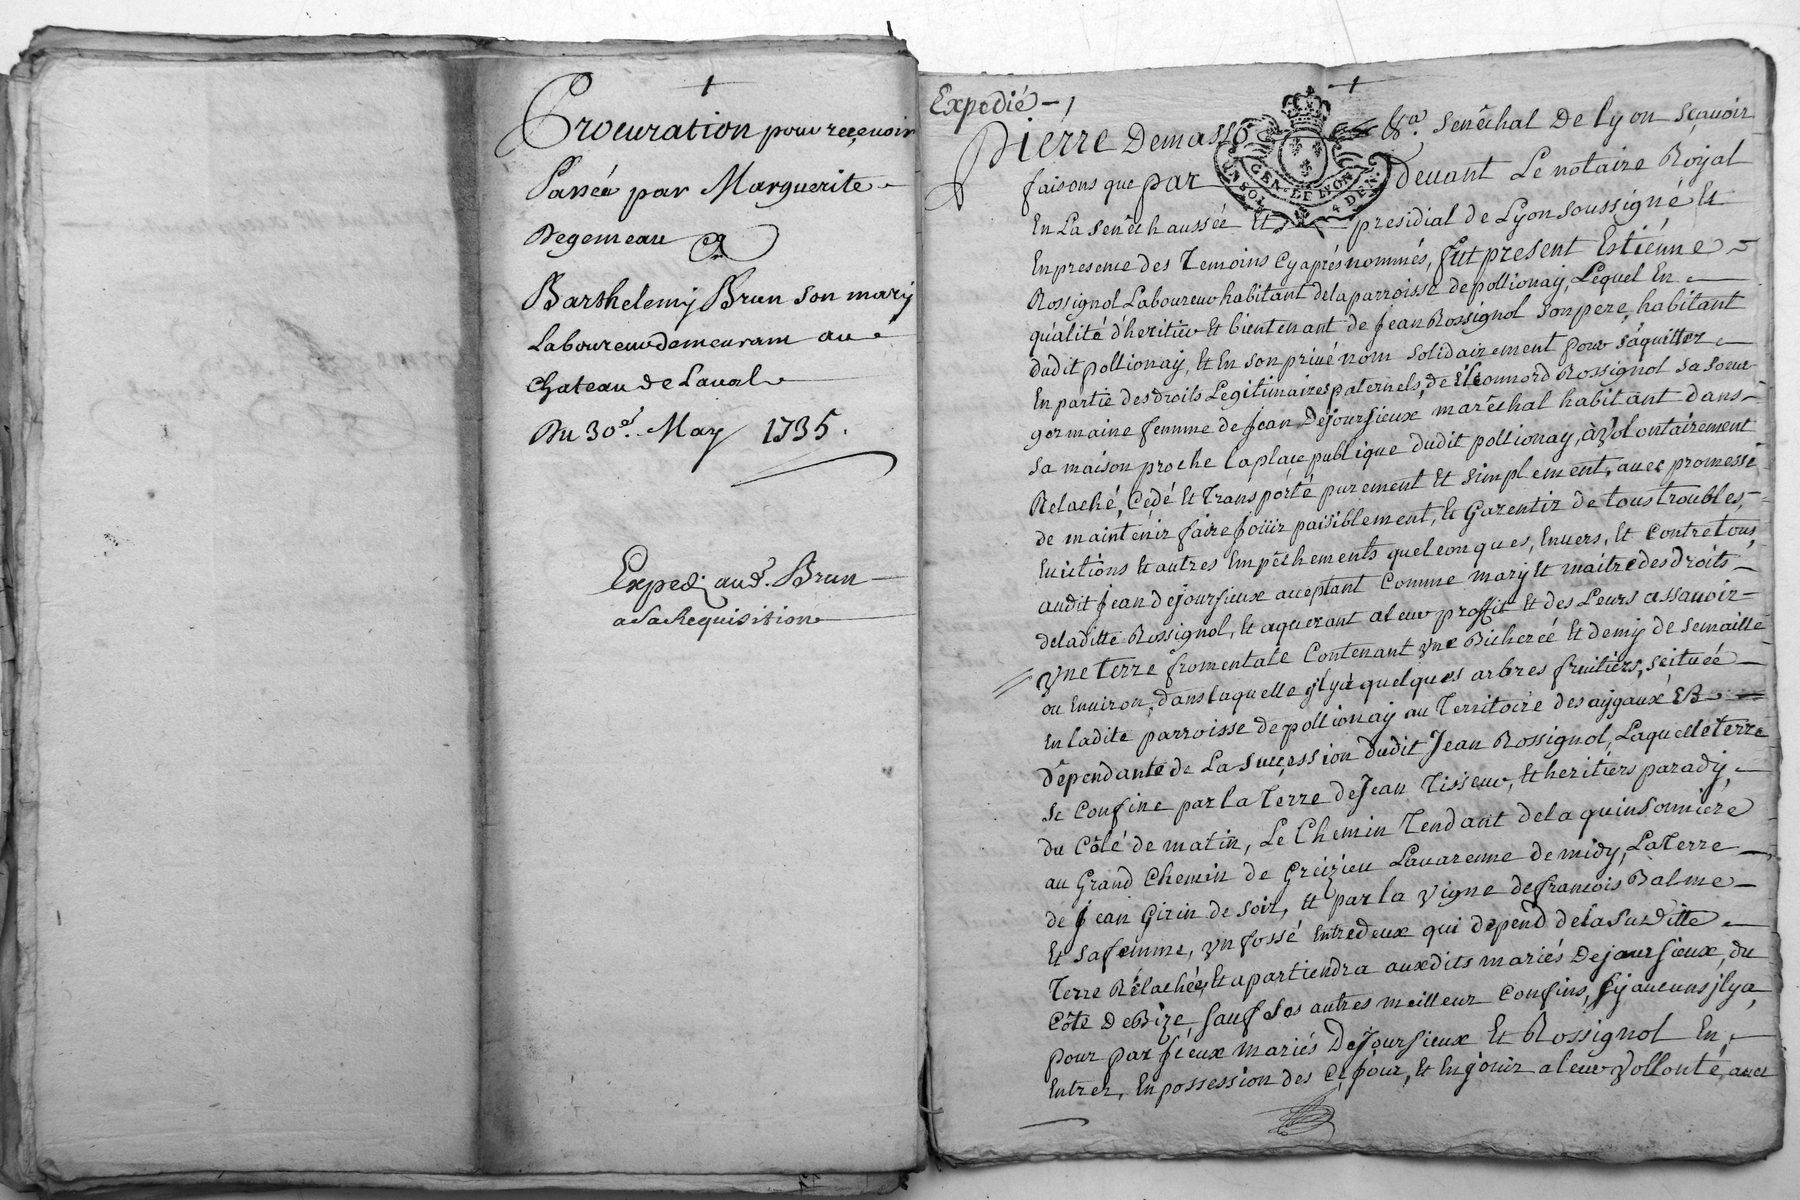 Procuration pour recevoir
Passée par Marguerite
Degemeau
Barthelemy Brun son mary
Laboureur demeurant au
chateau de Laval
Du 30e. May 1735.
Exped. aud. Brun
a Sa Requisition
Expedié
GEN. DE LYON
UN SOL 4 DEN.
Pierre Demasso Senêchal De lyon sçavoir
faisons que par Devant Le notaire Royal
En La senêchaussée Et presidial de Lyon soussigné Et
En presence des Temoins cyaprés nommés, fut present Estiénne
Rossignol Laboureur habitant de la parroisse de pollionay, Lequel En
qualité d'heritier et bientenant de Jean Rossignol son pere, habitant
dudit pollionay, Et En son privé nom solidairement pour s'áquitter
En partie des droits Legitimaires paternels, de Eleonnord Rossignol sa soeur
germaine femme de Jean Dejoursieux marêchal habitant dans
sa maison proche la place publique dudit pollionay, à Volontairement
Relaché, Cedé Et Transporté purement Et simplement, avec promesse
de maintenir faire joüir paisiblement, Et Garentir de tous troubles,
Evictions Et autres Empêchements quelconques, Envers, Et Contre tous,
audit Jean dejoursieux acceptant Comme mary Et maitre des droits
de laditte Rossignol, Et aquerant a leur proffit Et des Leurs assavoir
Vne Terre fromentale Contenant vne Bicherée Et demy de semaille
ou Environ, dans laquelle jlyà quelques arbres fruitiers, scituée
En ladite parroisse de pollionay au Territoire des aygaux Et
dépendante de La succession dudit Jean Rossignol, Laquelle terre
se Confine par la Terre de Jean Tisseur, Et heritiers parady,
du Côté de matin, Le Chemin Tendant de la quinsonniere
au Grand Chemin de Greizieu Lavarenne de midy, La Terre
de Jean Girin de soir, Et par la Vigne de francois Balme
Et sa femme, Vn fossé Entredeux qui dépend de la sus ditte
Terre Rélachée, Et apartiendra auxdits mariés Dejoursieux, du
Côté De Bize, sauf ses autres meilleur Confins, sy aucuns jlya
pour par jceux mariés Dejoursieux Et Rossignol En
Entrer, En possession des Ce jour, Et En joüir a leur Vollonté, avec